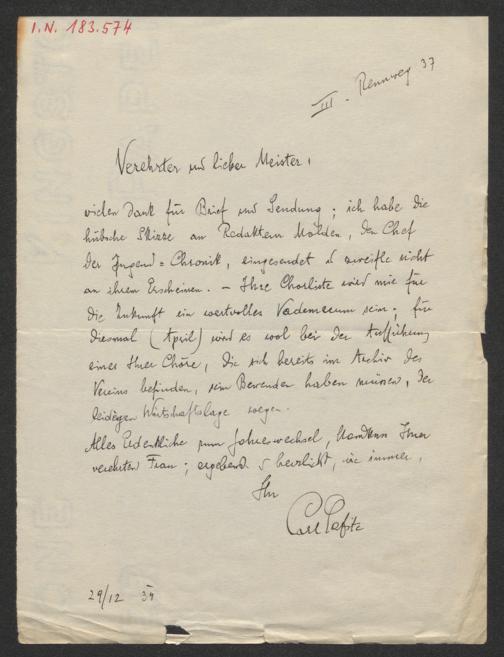 I.N. 183.574
III. Rennweg 37
Verehrter und lieber Meister,
vielen Dank für Brief und Sendung; ich habe die
hübsche Skizze an Redakteur Molden, den Chef
der Jugend=Chronik, eingesendet & zweifle nicht
an ihrem Erscheinen. – Ihre Chorliste wird mir für
die Zukunft ein wertvolles Vademecum sein; für
diesmal (April) wird es wol bei der Aufführung
eines Ihrer Chöre, die sich bereits im Archiv des
Vereins befinden, sein Bewenden haben müssen, der
leidigen Wirtschaftslage wegen.
Alles Erdenkliche zum Jahreswechsel, Handkuss Ihrer
verehrten Frau; ergebend & herzlichst, wie immer,
Ihr
Carl
29/12 34